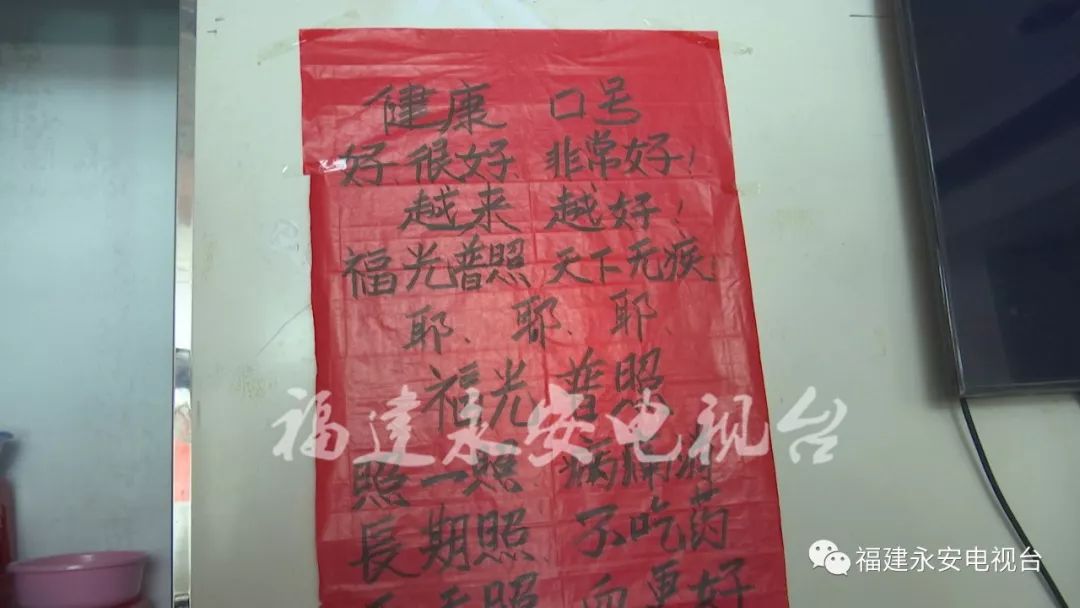 健康 口号
好很好 非常好!
越来 越好!
福光普照 天下无疾
耶、耶、耶、
福光 普照
福建永安电视台
照一照 病痛
長期照 不吃药
天天照 血更好
福建永安电视台